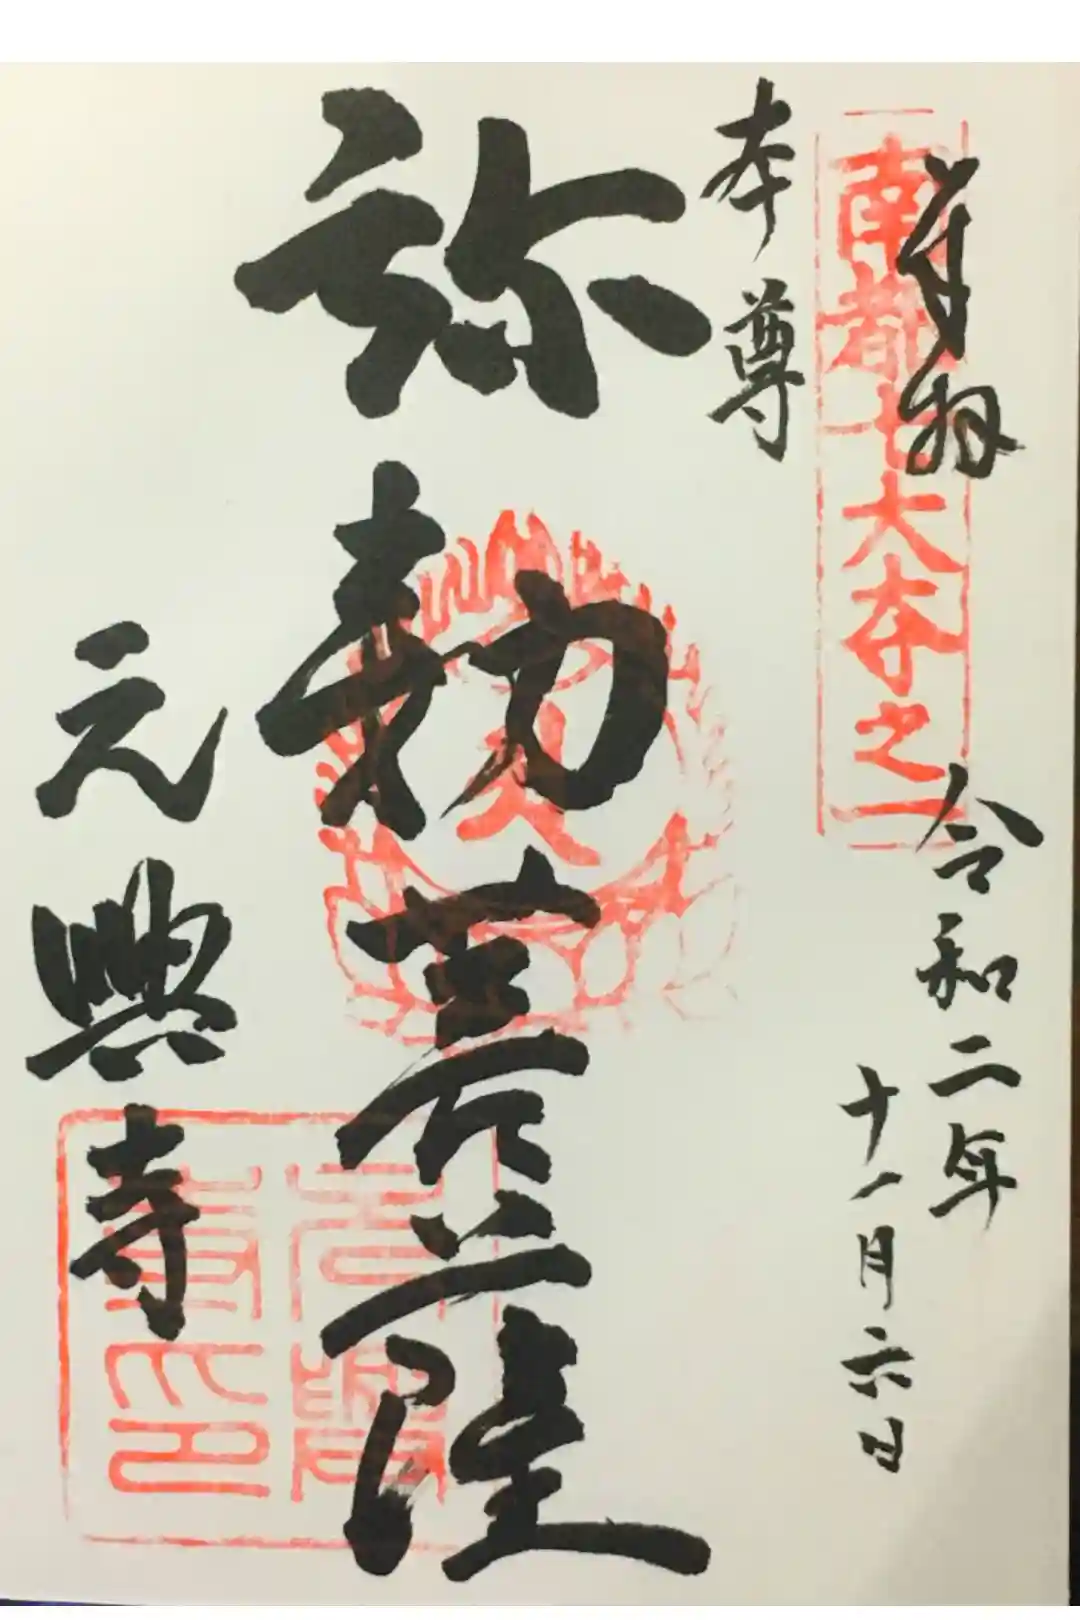 奉拝
令和二年
十一月六日
南都七大寺之一
本尊
弥勒菩薩
元興寺
元興寺印